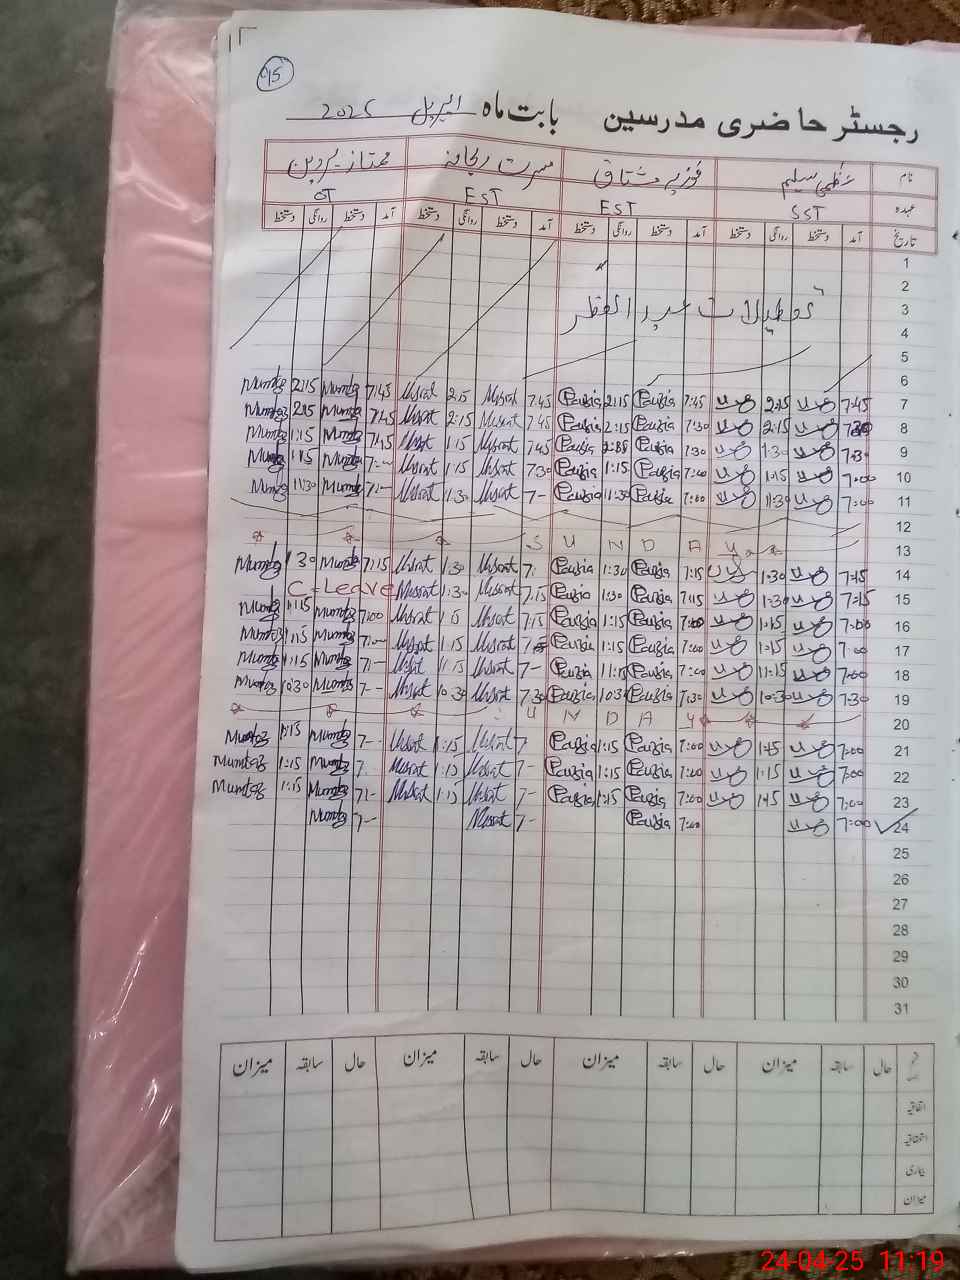 95
رجسٹر حاضری مدرسین بابت ماہ اپریل 2025
نام عظمیٰ سلیم فوزیہ مشتاق مسرت ریحانہ ممتاز پروین
عہدہ SST EST EST OT
تاریخ آمد دستخط روانگی دستخط آمد دستخط روانگی دستخط آمد دستخط روانگی دستخط آمد دستخط روانگی دستخط
1
2
3 تعطیلات عید الفطر
4
5
6
7 7:45 2:15 7:45 Pauzia 2:15 Pauzia 7:45 Msrat 2:15 Msrat 7:45 Mumtaz 2:15 Mumtaz
8 2:15 7:30 Pauzia 2:15 Pauzia 7:45 Msrat 2:15 Msrat 7:45 Mumtaz 2:15 Mumtaz
9 7:30 1:30 7:30 Pauzia Pauzia 7:45 Msrat 1:15 Msrat 7:45 Mumtaz 1:15 Mumtaz
10 7:00 1:15 7:00 Pauzia 1:15 Pauzia 7:30 Msrat 1:15 Msrat 7:- Mumtaz 1:15 Mumtaz
11 7:00 11:30 7:00 Pauzia 11:30 Pauzia 7- Msrat 11:30 Msrat 7:- Mumtaz 11:30 Mumtaz
12
13 SUNDAY
14 7:15 1:30 7:15 Pauzia 1:30 Pauzia 7: Msrat 1:30 Msrat 7:15 Mumtaz 1:30 Mumtaz
15 7:15 1:30 7:15 Pauzia 1:30 Pauzia 7:15 Msrat 1:30 Msrat C-Leave
16 7:00 1:15 7:00 Pauzia 1:15 Pauzia 7:15 Msrat 1:15 Msrat 7:00 Mumtaz 1:15 Mumtaz
17 7:00 1:15 7:00 Pauzia 1:15 Pauzia Msrat 1:15 Msrat 7:- Mumtaz 1:15 Mumtaz
18 7:00 11:15 7:00 Pauzia 11:15 Pauzia 7- Msrat 11:15 Msrat 7:- Mumtaz 11:15 Mumtaz
19 7:30 10:30 7:30 Pauzia 10:30 Pauzia 7:30 Msrat 10:30 Msrat 7:- Mumtaz 10:30 Mumtaz
20 SUNDAY
21 7:00 1:15 7:00 Pauzia 1:15 Pauzia 7 Msrat 1:15 Msrat 7:- Mumtaz 1:15 Mumtaz
22 7:00 1:15 7:00 Pauzia 1:15 Pauzia 7- Msrat 1:15 Msrat 7: Mumtaz 1:15 Mumtaz
23 7:00 1:15 7:00 Pauzia 1:15 Pauzia 7- Msrat 1:15 Msrat 7:- Mumtaz 1:15 Mumtaz
24 7:00 7:00 Pauzia 7- Msrat 7:- Mumtaz
25
26
27
28
29
30
31
حال سابقہ میزان حال سابقہ میزان حال سابقہ میزان حال سابقہ میزان
اتفاقیہ
استحقاقیہ
بیماری
میزان
24-04-25 11:19